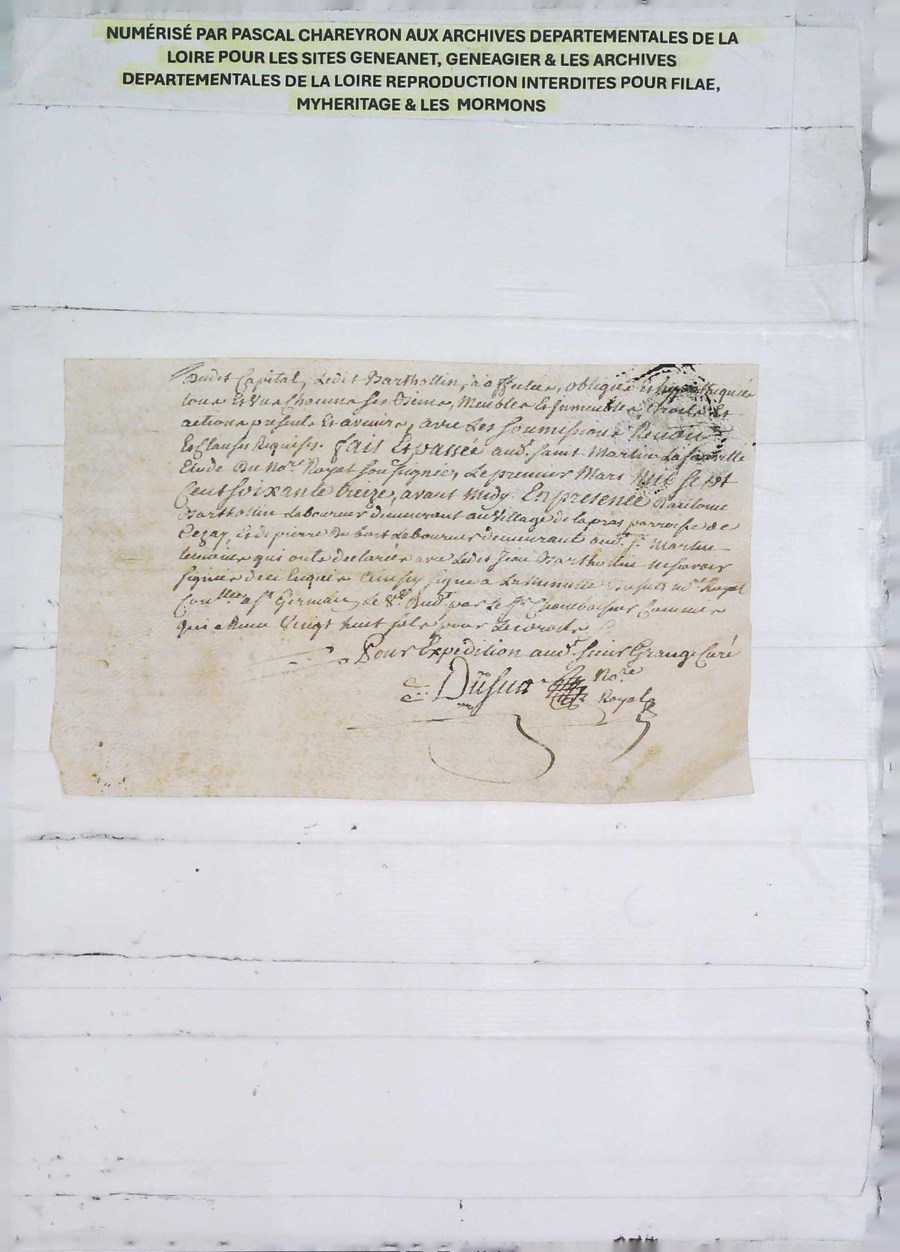 NUMÉRISÉ PAR PASCAL CHAREYRON AUX ARCHIVES DEPARTEMENTALES DE LA
LOIRE POUR LES SITES GENEANET, GENEAGIER & LES ARCHIVES
DEPARTEMENTALES DE LA LOIRE REPRODUCTION INTERDITES POUR FILAE,
MYHERITAGE & LES MORMONS
Dudit Capital, Ledit Barthollin, a affecté, obligé et hypothequé
tous Et Un Chacuns ses Biens, Meubles Et Immeubles, droits Et
actions presents Et avenirs, avec Les soumissions Renon.
Et Clauses Requises. fait Et passée aud.t saint Martin La sauveté
Etude Du No.re Royal sousigné, Le premier Mars Mil sept
Cent soixante treize, avant midy En presence d'antoine
Barthollin Laboureur demeurant au Village de Lapras parroisse de
Cezay, Et de pierre Du bost Laboureur demeurant aud.t S.t Martin
temoins qui ont declarés avec Ledit Jean Barthollin ne scavoir
signer de ce Enquis Ainsy signé a La Minutte No.re Royal
Con.llee a S.t Germain Le 8.e Dud.t par Le S.r Commis
qui a Recu Vingt huit sols pour Les droits
Pour Expedition aud.t sieur Grange Curé
No.re
Royal